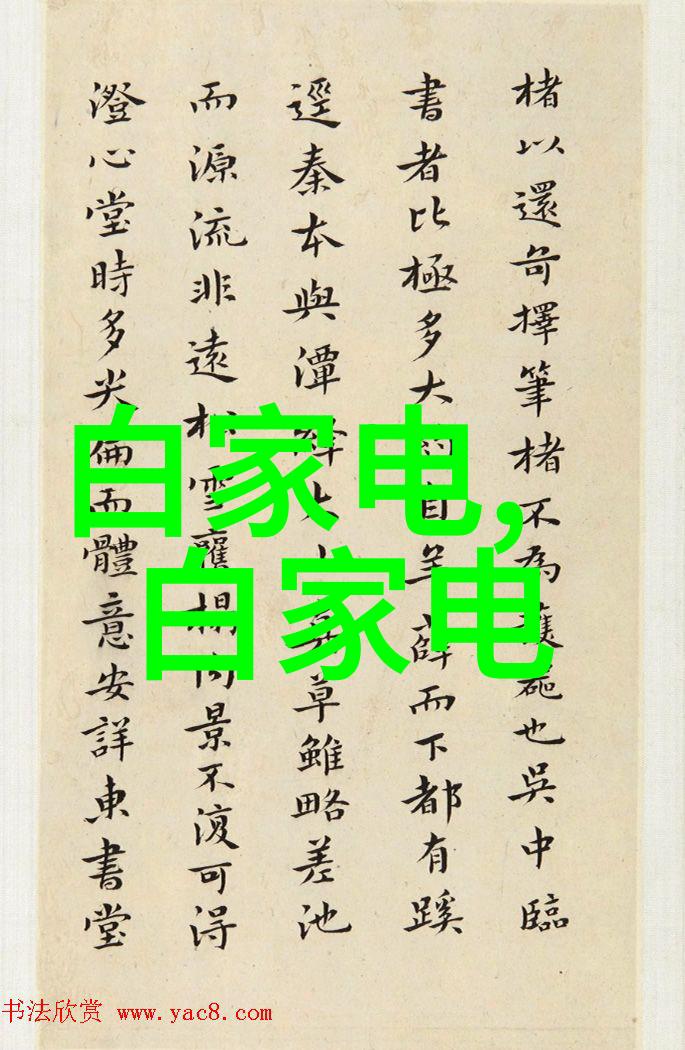 楮以還奇擇筆楮不為也吳中臨
書者比極多大自羊薛而下都有蹊
逕秦本與潭絳大草雖略差池
而源流非遠松雪景不復可得
澄心堂時多尖偏而體意安詳東書堂
白家电,
白家电
书法欣赏 www.yac8.com